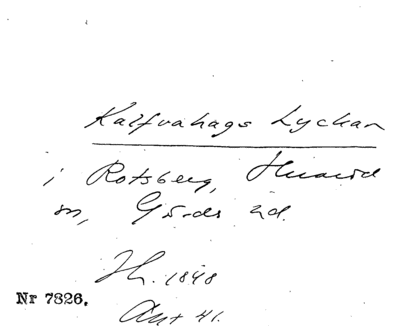 Kalfvahags Lyckan
i Rotsberg,
m, Gärds hd.
Lh. 1848
Nr 7826.
Akt 41.